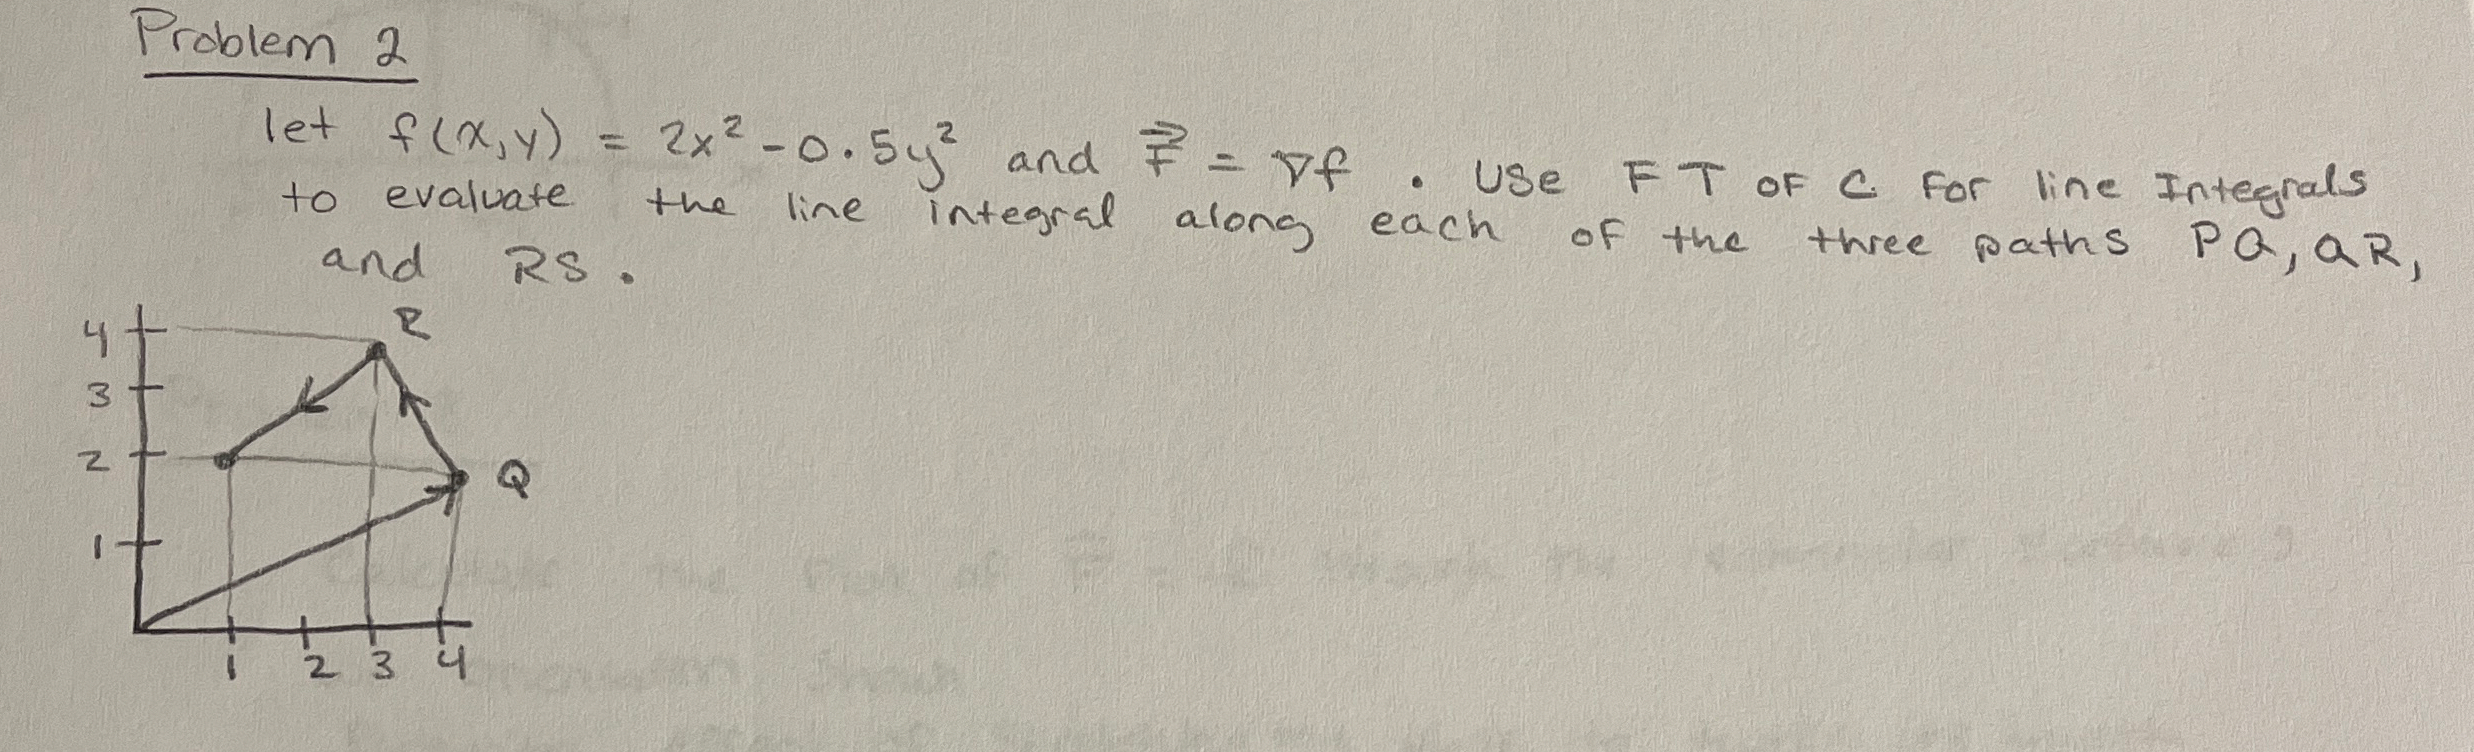 Problem 2
let f(x,y) = 2x² - 0.5y² and F⃗ = ∇f . Use FT OF C For line Integrals
to evaluate the line integral along each of the three paths PQ, QR,
and RS.
R
4
3
2
Q
1
1 2 3 4